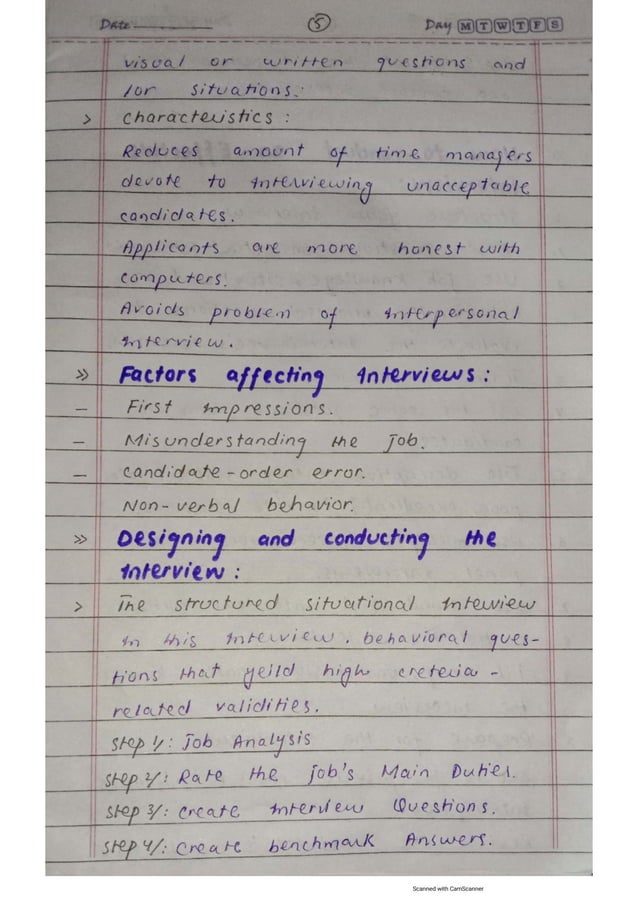 Date 5 Day M T W T F S
visual or written questions and
/or situations.
> characteristics :
Reduces amount of time managers
devote to Interviewing unacceptable
candidates.
Applicants are more honest with
computers.
Avoids problem of Interpersonal
Interview.
» Factors affecting Interviews :
– First Impressions.
– Misunderstanding the Job.
– candidate-order error.
Non-verbal behavior.
» Designing and conducting the
Interview :
> The structured situational Interview
In this Interview. behavioral ques-
tions that yeild high creteria -
related validities.
Step 1/: Job Analysis
Step 2/: Rate the job's Main Duties.
Step 3/: Create Interview Questions.
Step 4/: Create benchmark Answers.
Scanned with CamScanner